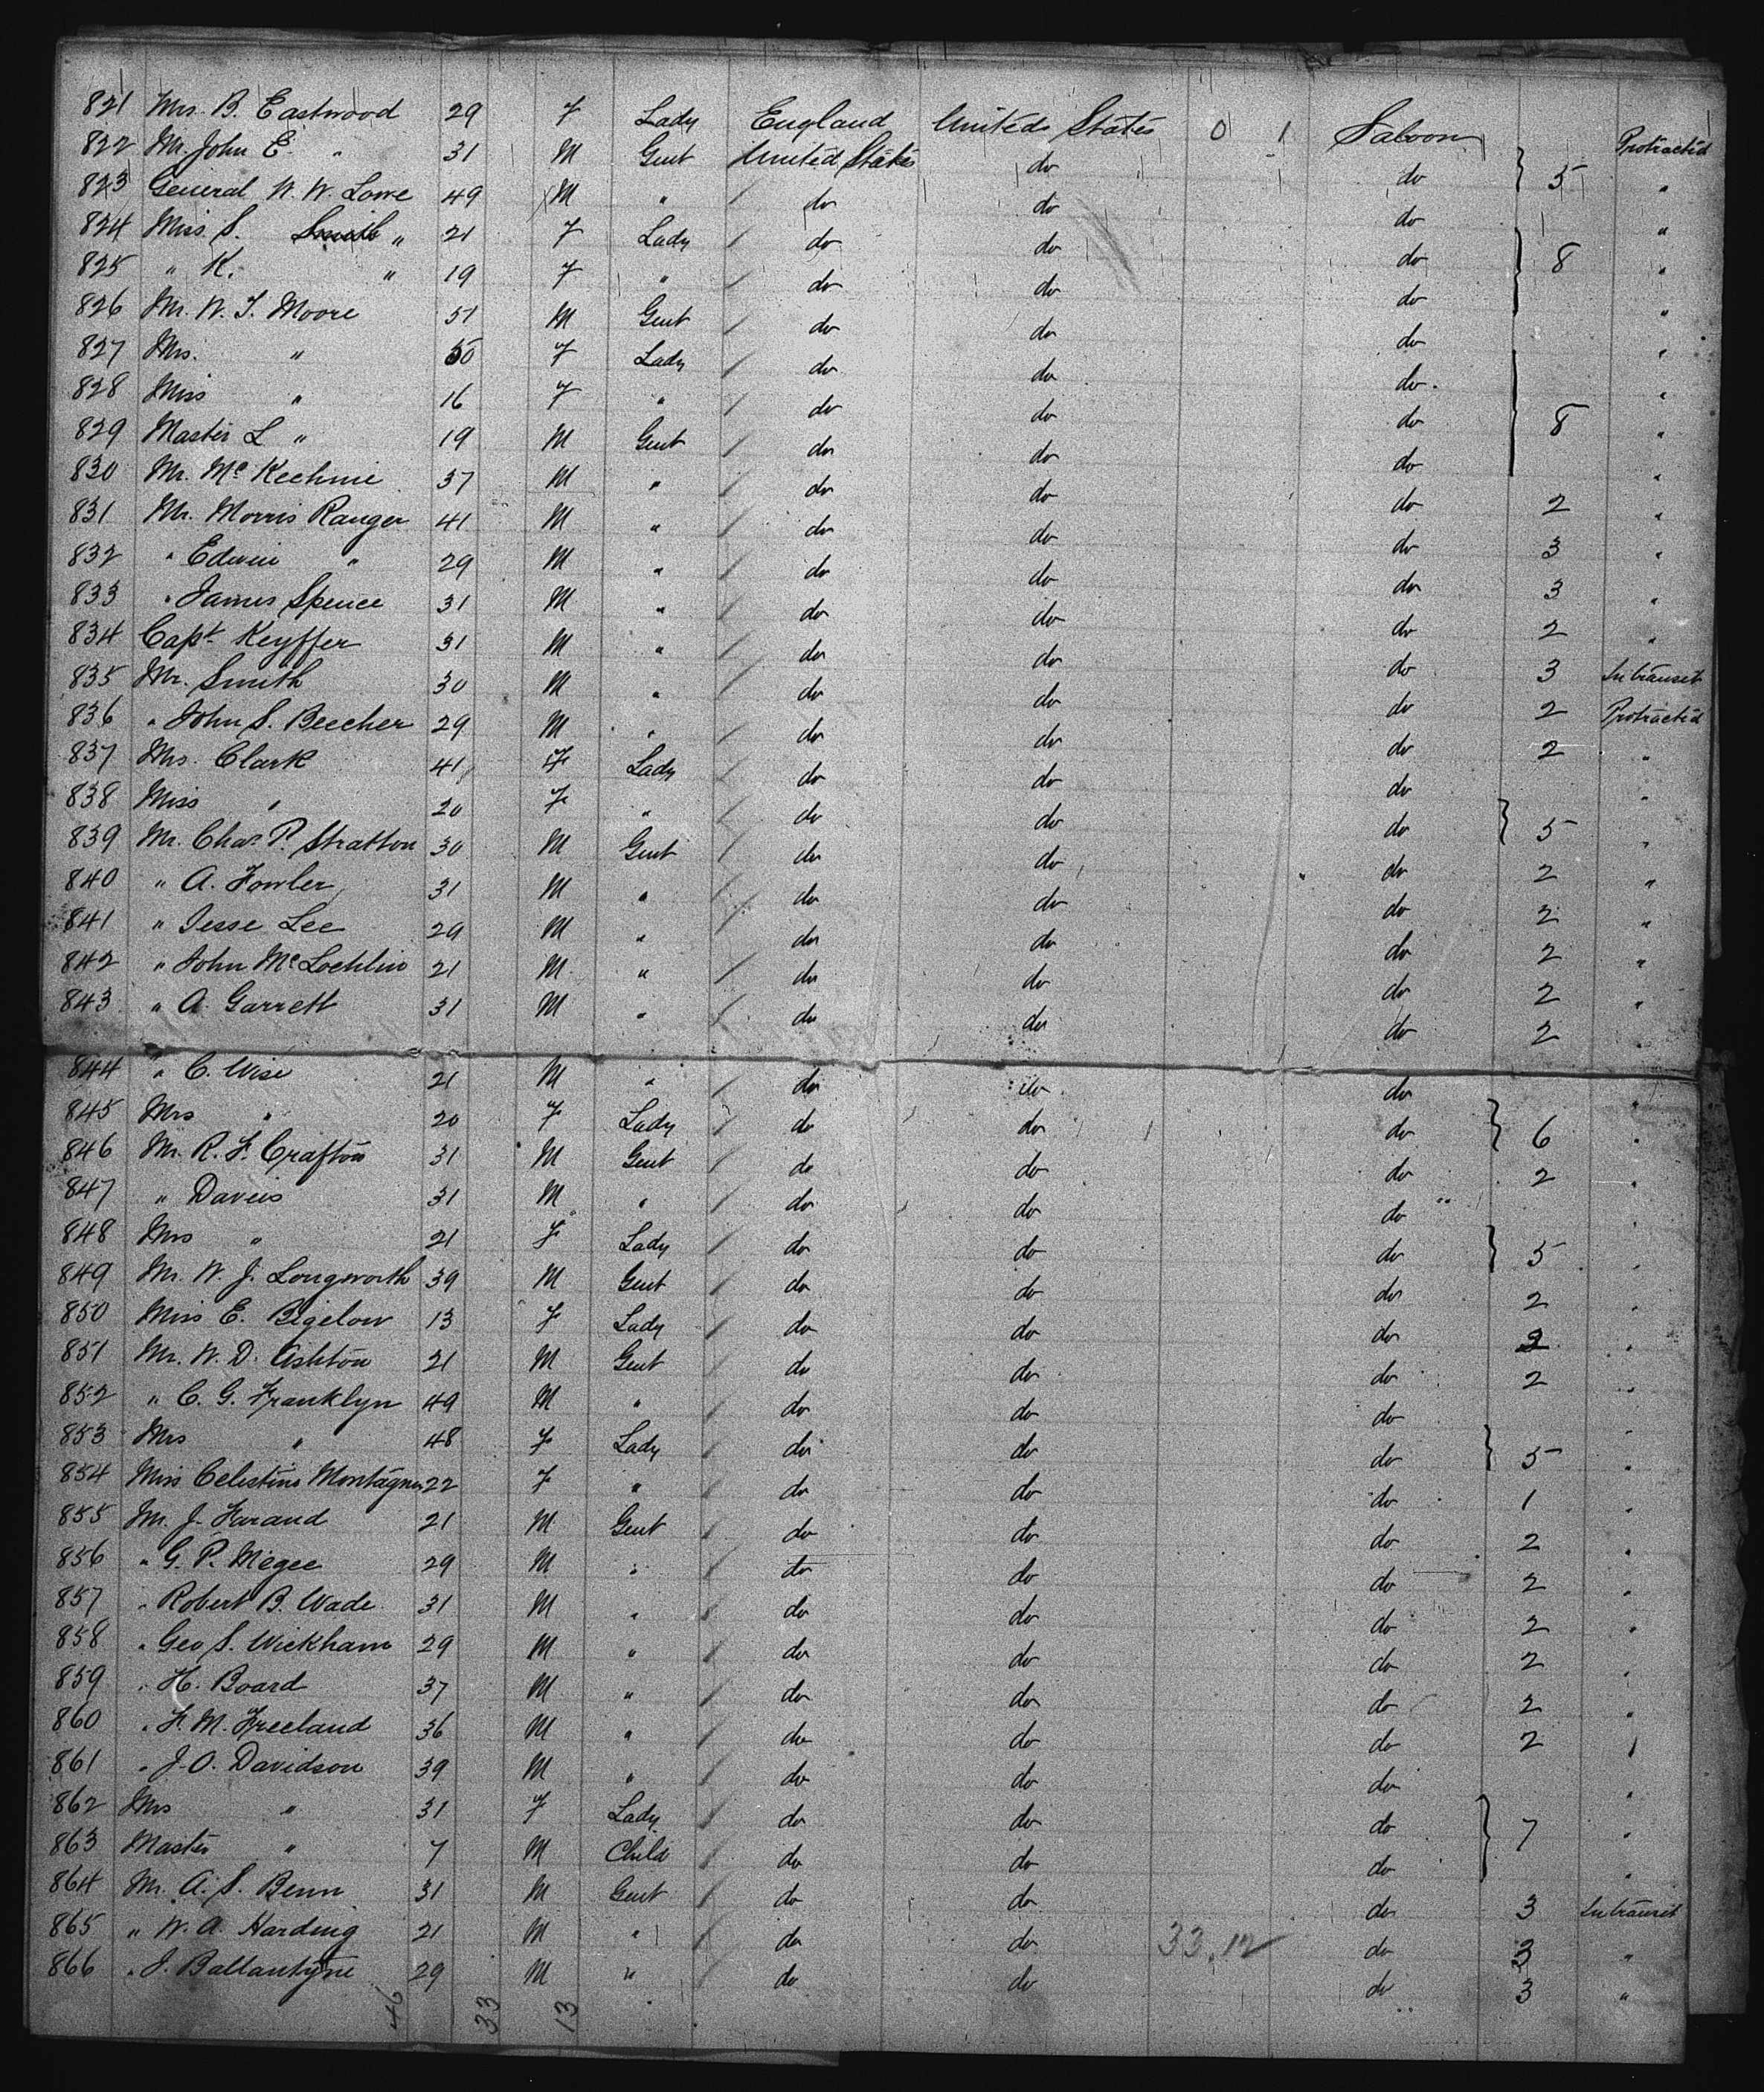 821 Mrs. B. Eastwood 29 F Lady England United States 0 1 Saloon Protracted
822 Mr. John E. " 31 M Gent United States do do } 5 "
823 General W. W. Lowe 49 M " do do do "
824 Miss S. " 21 F Lady do do do } 8 "
825 " K. " 19 F " do do do "
826 Mr. W. T. Moore 51 M Gent do do do "
827 Mrs. " 50 F Lady do do do "
828 Miss " 16 F " do do do } 8 "
829 Master L " 19 M Gent do do do "
830 Mr. Mc Kechnie 37 M " do do do 2 "
831 Mr. Morris Ranger 41 M " do do do 3 "
832 " Edwin " 29 M " do do do 3 "
833 " James Spence 31 M " do do do 2 "
834 Capt. Keyffer 31 M " do do do 3 In transit
835 Mr. Smith 30 M " do do do 2 Protracted
836 " John S. Beecher 29 M " do do do 2 "
837 Mrs. Clark 41 F Lady do do do "
838 Miss " 20 F " do do do } 5 "
839 Mr. Chas. P. Stratton 30 M Gent do do do 2 "
840 " A. Fowler 31 M " do do do 2 "
841 " Jesse Lee 29 M " do do do 2 "
842 " John McLochlin 21 M " do do do 2 "
843 " A. Garrett 31 M " do do do 2 "
844 " C. Wise 21 M " do do do "
845 Mrs " 20 F Lady do do do } 6 "
846 Mr. R. F. Crafton 31 M Gent do do do 2 "
847 " Daveis 31 M " do do do "
848 Mrs " 21 F Lady do do do } 5 "
849 Mr. W. J. Longworth 39 M Gent do do do 2 "
850 Miss E. Bigelow 13 F Lady do do do 2 "
851 Mr. W. D. Ashton 21 M Gent do do do 2 "
852 " C. G. Franklyn 49 M " do do do "
853 Mrs " 48 F Lady do do do } 5 "
854 Miss Celestine 22 F " do do do 1 "
855 Mr. J. Farand 21 M Gent do do do 2 "
856 " G. P. Megee 29 M " do do do 2 "
857 " Robert B. Wade 31 M " do do do 2 "
858 " Geo S. Wickham 29 M " do do do 2 "
859 " H. Board 37 M " do do do 2 "
860 " F. M. Freeland 36 M " do do do 2 "
861 " J. O. Davidson 39 M " do do do "
862 Mrs " 31 F Lady do do do } 7 "
863 Master " 7 M Child do do do "
864 Mr. A. S. Benn 31 M Gent do do do 3 In transit
865 " W. A. Harding 21 M " do do do 3 "
866 " J. Ballantyne 29 M " do do do 3 "
46 33 13